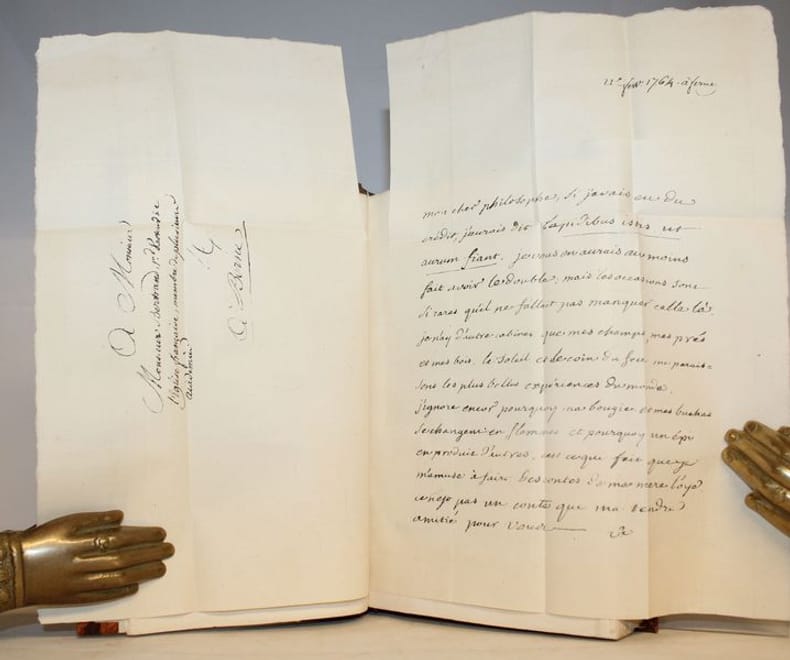 A Monsieur
Monsieur Bertrand 1er Pasteur de
l'église françaisse, membre de plusieurs
académies
A Berne
11e fevr 1764 à ferney
mon cher philosophe, si j'avais eu du
crédit, j'aurais dit lapidibus istis ut
aurum fiant. je vous en aurais au moins
fait avoir le double; mais les occasions sont
si rares qu'il ne fallait pas manquer celle là.
je n'ay d'autre cabinet que mes champs, mes prés
et mes bois. le soleil et le coin du feu me parais=
sent les plus belles expériences du monde.
j'ignore encor pourquoy ma bougie et mes buches
se changent en flammes et pourquoy un épi
en produit d'autres. c'est ce qui fait que je
m'amuse à faire des contes de ma mere l'oye.
ce n'est pas un conte que ma tendre
amitié pour vous V